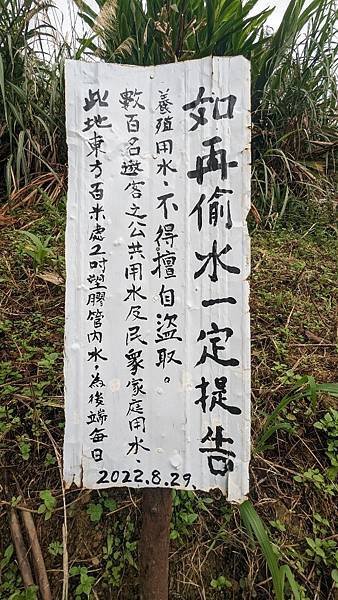 此地東方百米處2吋塑膠管內水,為後端每日
數百名遊客之公共用水及民眾家庭用水、
養殖用水、不得擅自盜取。
如再偷水一定提告
2022.8.29.